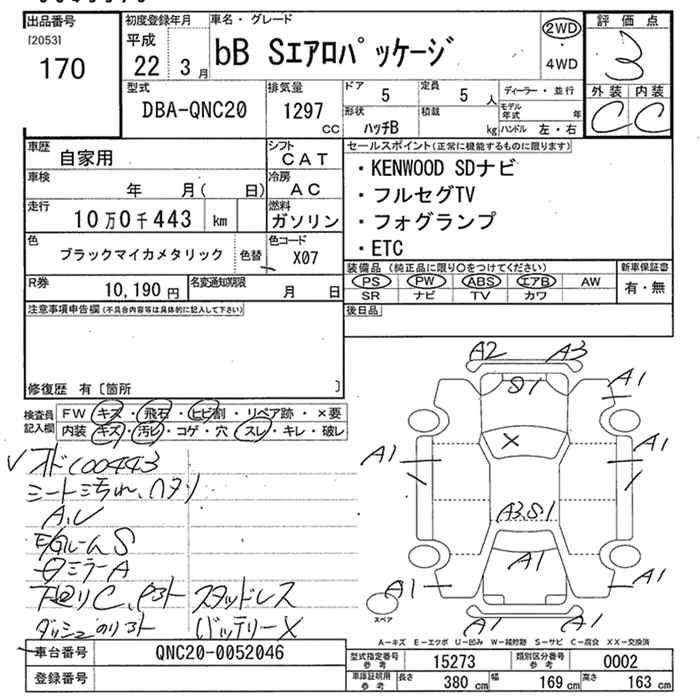 出品番号
[2053]
170
初度登録年月
平成
22 3 月
車名・グレード
bB Sエアロパッケージ
2WD
・
4WD
評価点
3
外装 内装
C C
型式
DBA-QNC20
排気量
1297
CC
ドア
5
定員
5 人
形状
ハッチB
積載
kg
ディーラー・並行
モデル年式 年
ハンドル 左・右
車歴
自家用
シフト
CAT
車検
年 月( 日)
冷房
AC
走行
10万0千443 km
燃料
ガソリン
色
ブラックマイカメタリック
色替
色コード
X07
R券
10,190 円
名変通知期限
月 日
セールスポイント(正常に機能するものに限ります)
・KENWOOD SDナビ
・フルセグTV
・フォグランプ
・ETC
装備品 (純正品に限り○をつけてください)
PS PW ABS エアB AW
SR ナビ TV カワ
新車保証書
有・無
後日品
注意事項申告欄(不具合内容等は具体的に記入して下さい)
修復歴 有〔箇所 〕
検査員
記入欄
FW キズ・飛石・ヒビ割・リペア跡・×要
内装 キズ・汚レ・コゲ・穴・スレ・キレ・破レ
オド100443
シート汚れ、ハタリ
E/Gルーム S
ミラーA
下廻りC、
スタッドレス
バッテリーX
A2 A3
S1
A1
X
A1 A1
A3 S1
A1
A1 A1
A1 A1
スペア
A-キズ E-エクボ U-凹み W-補修跡 S-サビ C-腐食 XX-交換済
車台番号
QNC20-0052046
登録番号
型式指定番号
参考
15273
類別区分番号
参考
0002
車庫証明用
参考
長さ 380 cm 幅 169 cm 高さ 163 cm